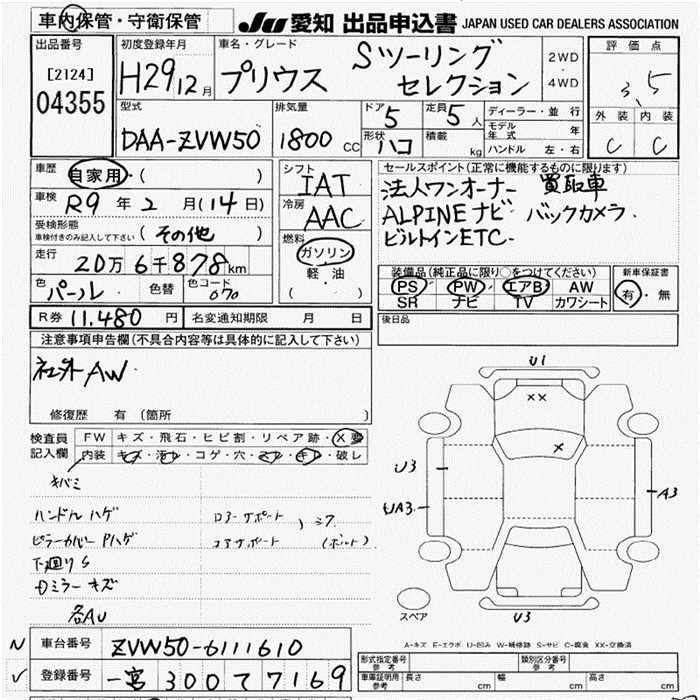 車内保管・守衛保管
JU 愛知 出品申込書 JAPAN USED CAR DEALERS ASSOCIATION
出品番号
[2124]
04355
初度登録年月
H29 12月
車名・グレード
プリウス Sツーリング
セレクション
2WD
・
4WD
評価点
3.5
外装 内装
C C
型式
DAA-ZVW50
排気量
1800 CC
ドア 5
形状 ハコ
定員 5人
積載 kg
ディーラー・並行
モデル年式 年
ハンドル 左・右
車歴
自家用・( )
車検 R9年2月(14日)
受検形態
車検付きのみ記入して下さい (その他)
走行
20万6千878km
色 パール 色替 色コード 070
シフト
IAT
冷房
AAC
燃料
ガソリン
軽・油
( )
セールスポイント(正常に機能するものに限ります)
法人ワンオーナー 買取車
ALPINEナビ バックカメラ
ビルトインETC
装備品(純正品に限り○をつけてください)
PS PW エアB AW
SR ナビ TV カワシート
新車保証書
有・無
R券 11,480円
名変通知期限 月 日
後日品
注意事項申告欄(不具合内容等は具体的に記入して下さい)
社外AW
修復歴 有(箇所 )
検査員
記入欄
FW キズ・飛石・ヒビ割・リペア跡・X要
内装 キズ・汚レ・コゲ・穴・スレ・キレ・破レ
キバミ
ハンドルハゲ
ピラーカバーPハゲ
下廻りS
Dミラーキズ
各AU
コアサポート
(ボルト)
U1
XX
X
U3
UA3
A3
U3
スペア
A-キズ E-エクボ U-凹み W-補修跡 S-サビ C-腐食 XX-交換済
N 車台番号 ZVW50-6111610
✓ 登録番号 一宮 300 て 7169
形式指定番号
参考
類別区分番号
参考
車庫証明用
参考
長さ cm 幅 cm 高さ cm